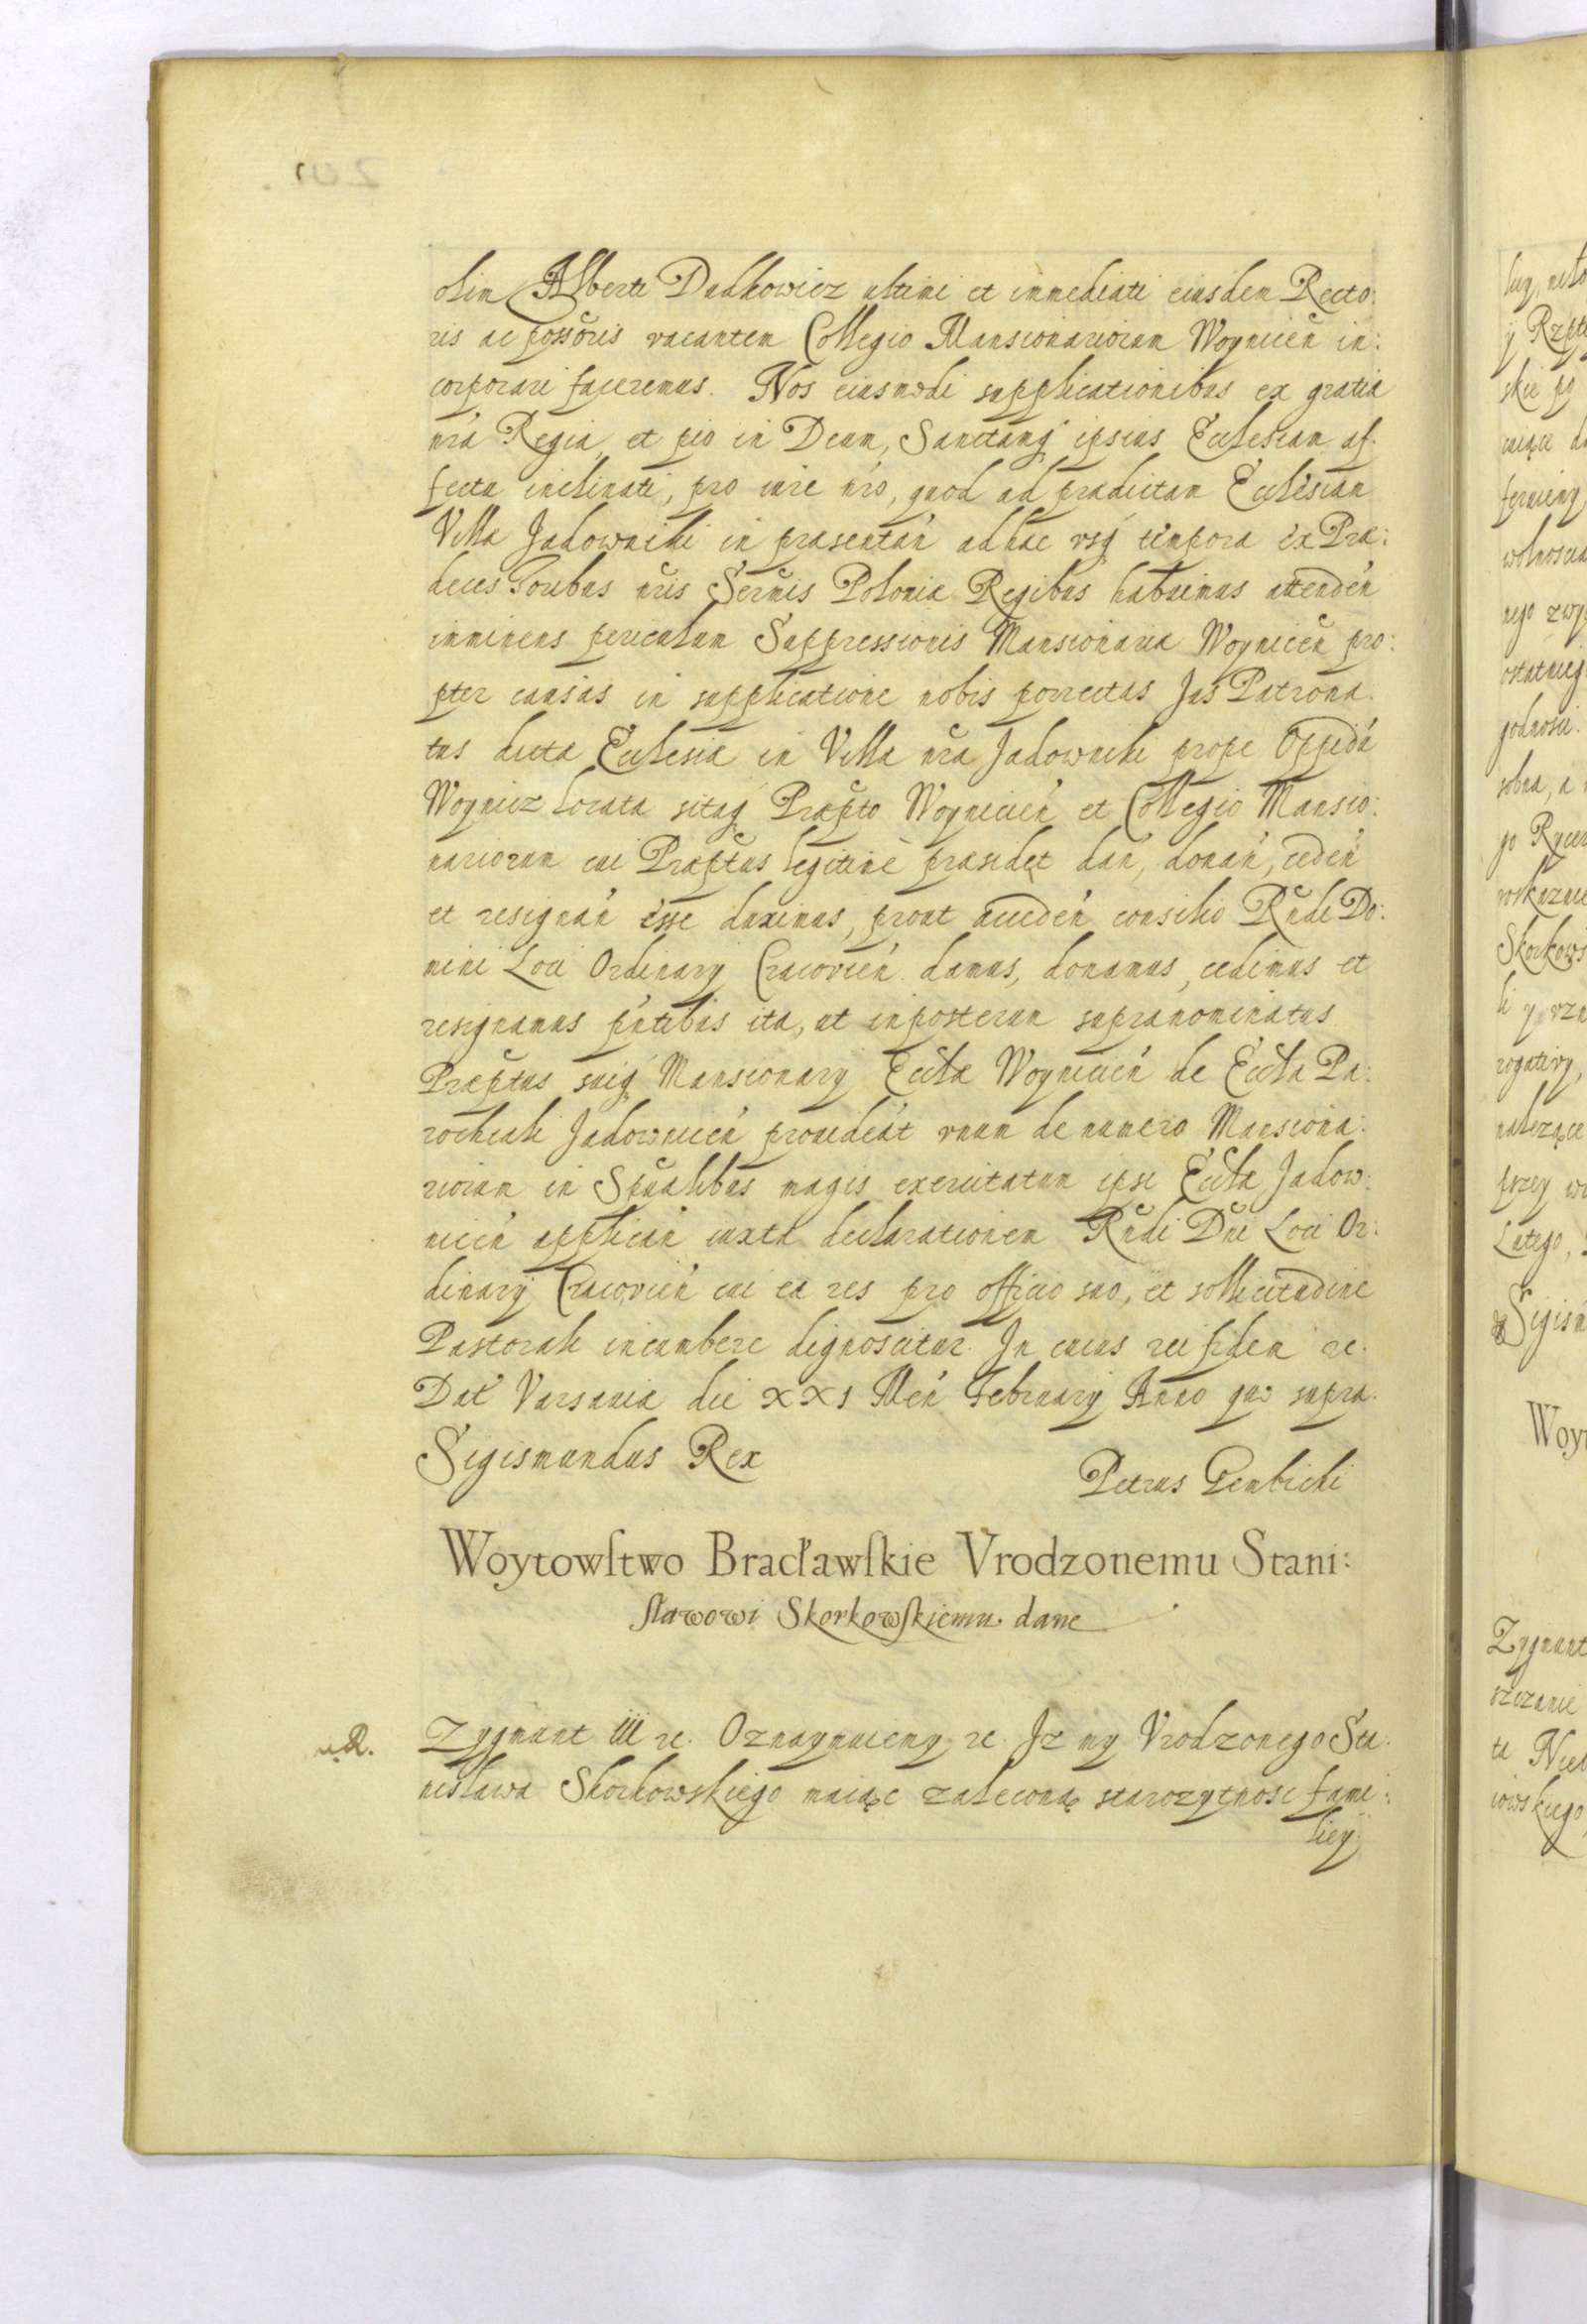 olim Alberti Dudkowicz ultimi et immediati eiusdem Recto:
ris ac possoris vacantem Collegio Mansionariorum Woynicen̄ in:
corporari faceremus. Nos eiusmodi supplicationibus ex gratia
n̄ra Regia, et pio in Deum, Sanctamq́ ipsius Ecclesiam af:
fectu inclinati, pro iure n̄ro, quod ad prædictam Ecclesiam
Villæ Jadowniki in præsentan̄ adhæc vsq́ tempora ex Præ:
decessoribus n̄ris Sermis Poloniæ Regibus habuimus attenden̄
imminens periculum Suppressionis Mansionariæ Woynicen̄ pro:
pter causas in supplicatione nobis porrectas Jus Patrona:
tus dictæ Ecclesiæ in Villa n̄ra Jadowniki prope Oppidū
Woynicz locata sitaq́ Præpto Woynicien̄ et Collegio Mansio:
nariorum cui Præptus legitime præsidet dan̄, donan̄, ceden̄
et resignan̄ esse duximus, prout acceden̄ consilio Rn̄di Do:
mini Loci Ordinarÿ Cracovien̄ damus, donamus, cedimus et
resignamus pn̄tibus ita, ut inposterum supranominatus
Præptus suiq́ Mansionarÿ Eccl̄æ Woynicien̄ de Eccl̄a Pa:
rochiali Jadownicen̄ prouideat vnum de numero Mansiona:
riorum in Sp̄ualibus magis exercitatum ipsi Eccl̄æ Jadow:
nicen̄ applican̄ iuxta declarationem Rn̄di Dn̄i Loci Or:
dinarÿ Cracovien̄ cui ea res pro officio suo, et sollicitudine
Pastorali incumbere dignoscitur. In cuius rei fidem ꝛc.
Dat̄ Varsaviæ die XXI Men̄ Februarÿ Anno quo supra.
Sigismundus Rex
Petrus Gembicki
Woytowſtwo Bracławſkie Vrodzonemu Stani:
ſławowi Skorkowſkiemu dane
Zygmunt III ꝛc. Oznaymuiemy ꝛc. Jz my Vrodzonego Sta:
nisława Skorkowskiego maiąc zaleconą starozytnosc fami:
liey